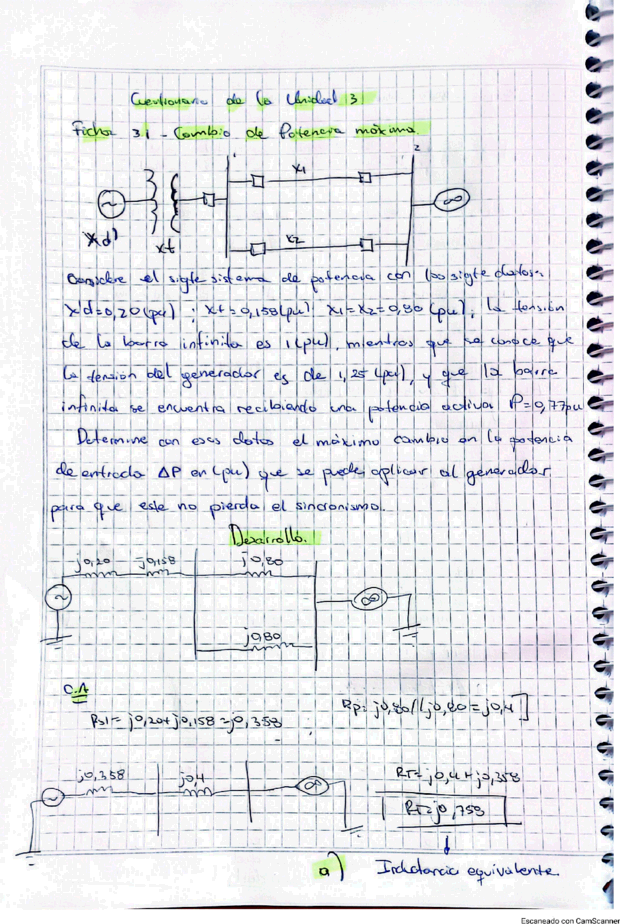 Cuestionario de la Unidad 3
Ficha 3.1 - Cambio de Potencia máxima.
1
2
x1
x2
Xd'
xt
Considere el sigte sistema de potencia con los sigte datos:
X'd=0,20(pu) ; Xt=0,158(pu) x1=x2=0,80 (pu), la tensión
de la barra infinita es 1(pu), mientras que se conoce que
la tensión del generador es de 1,25 (pu), y que la barra
infinita se encuentra recibiendo una potencia activa P=0,77pu
Determine con esos datos el máximo cambio en la potencia
de entrada ΔP en (pu) que se puede aplicar al generador
para que este no pierda el sincronismo.
Desarrollo.
j0,20 j0,158 j0,80
∞
j0,80
C.A
Rs1= j0,20+j0,158=j0,358
Rp: j0,80//j0,80=j0,4
j0,358 j0,4 ∞
RT=j0,4+j0,358
RT=j0,758
a) Inductancia equivalente
Escaneado con CamScanner